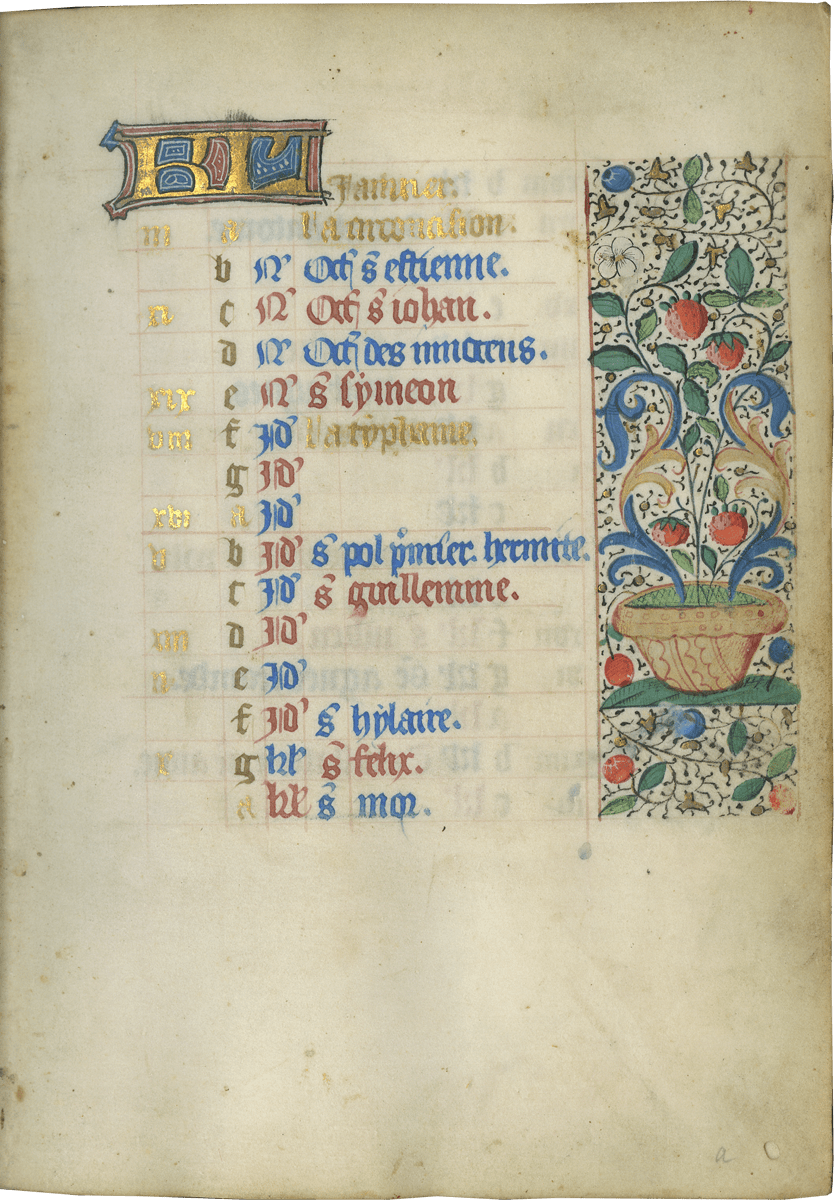 KL Januier.
iii a La circoncision.
b N' Oct s estienne.
xi c N' Oct s iohan.
d N' Oct des innocens.
xix e N' s symeon
viii f Id' La typhaine.
g Id'
xvi a Id'
v b Id' s pol p'mier. hermite.
c Id' s guillemme.
xiii d Id'
ii e Id'
f Id' s hylaire.
x g kl' s felix.
a kl' s mor.
a